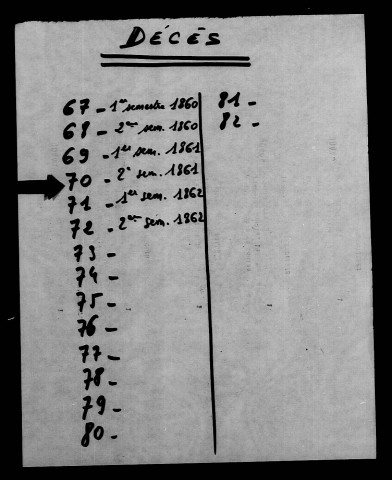 DÉCÈS
67 - 1er semestre 1860
68 - 2me sem. 1860
69 - 1er sem. 1861
70 - 2e sem. 1861
71 - 1er sem. 1862
72 - 2me sem. 1862
73 -
74 -
75 -
76 -
77 -
78 -
79 -
80 -
81 -
82 -